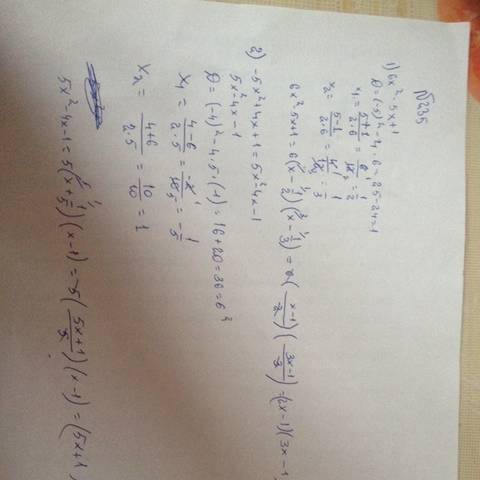 №235
1) 6x²-5x+1
D=(-5)²-4·6=25-24=1
x₁= (5+1)/(2·6) = 6/12 = 1/2
x₂= (5-1)/(2·6) = 4/12 = 1/3
6x²-5x+1=6(x-1/2)(x-1/3)=6( /2)((3x-1)/3)=(2x-1)(3x-1
2) -5x²+4x+1=5x²-4x-1
5x²-4x-1
D=(-4)²-4·5·(-1)=16+20=36=6²
x₁= (4-6)/(2·5) = -2/10 = -1/5
x₂= (4+6)/(2·5) = 10/10 = 1
5x²-4x-1=5(x+1/5)(x-1)=5((5x+1)/5)(x-1)=(5x+1